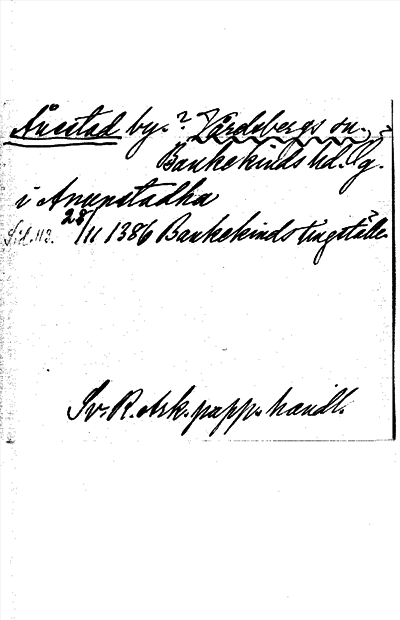 Ånestad by. ? Vårdsbergs sn.,
Bankekinds hd. Ög.
i Anunstadha
28/11 1386 Bankekinds tingställe.
Sv. R. Ark. papp. handl.